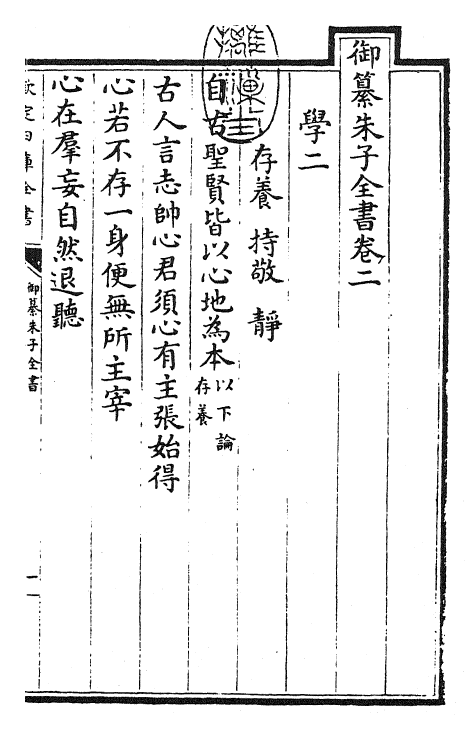 御纂朱子全書卷二
學二
存養 持敬 靜
自古聖賢皆以心地為本以下論存養
古人言志帥心君須心有主張始得
心若不存一身便無所主宰
心在羣妄自然退聽
欽定四庫全書
御纂朱子全書
一